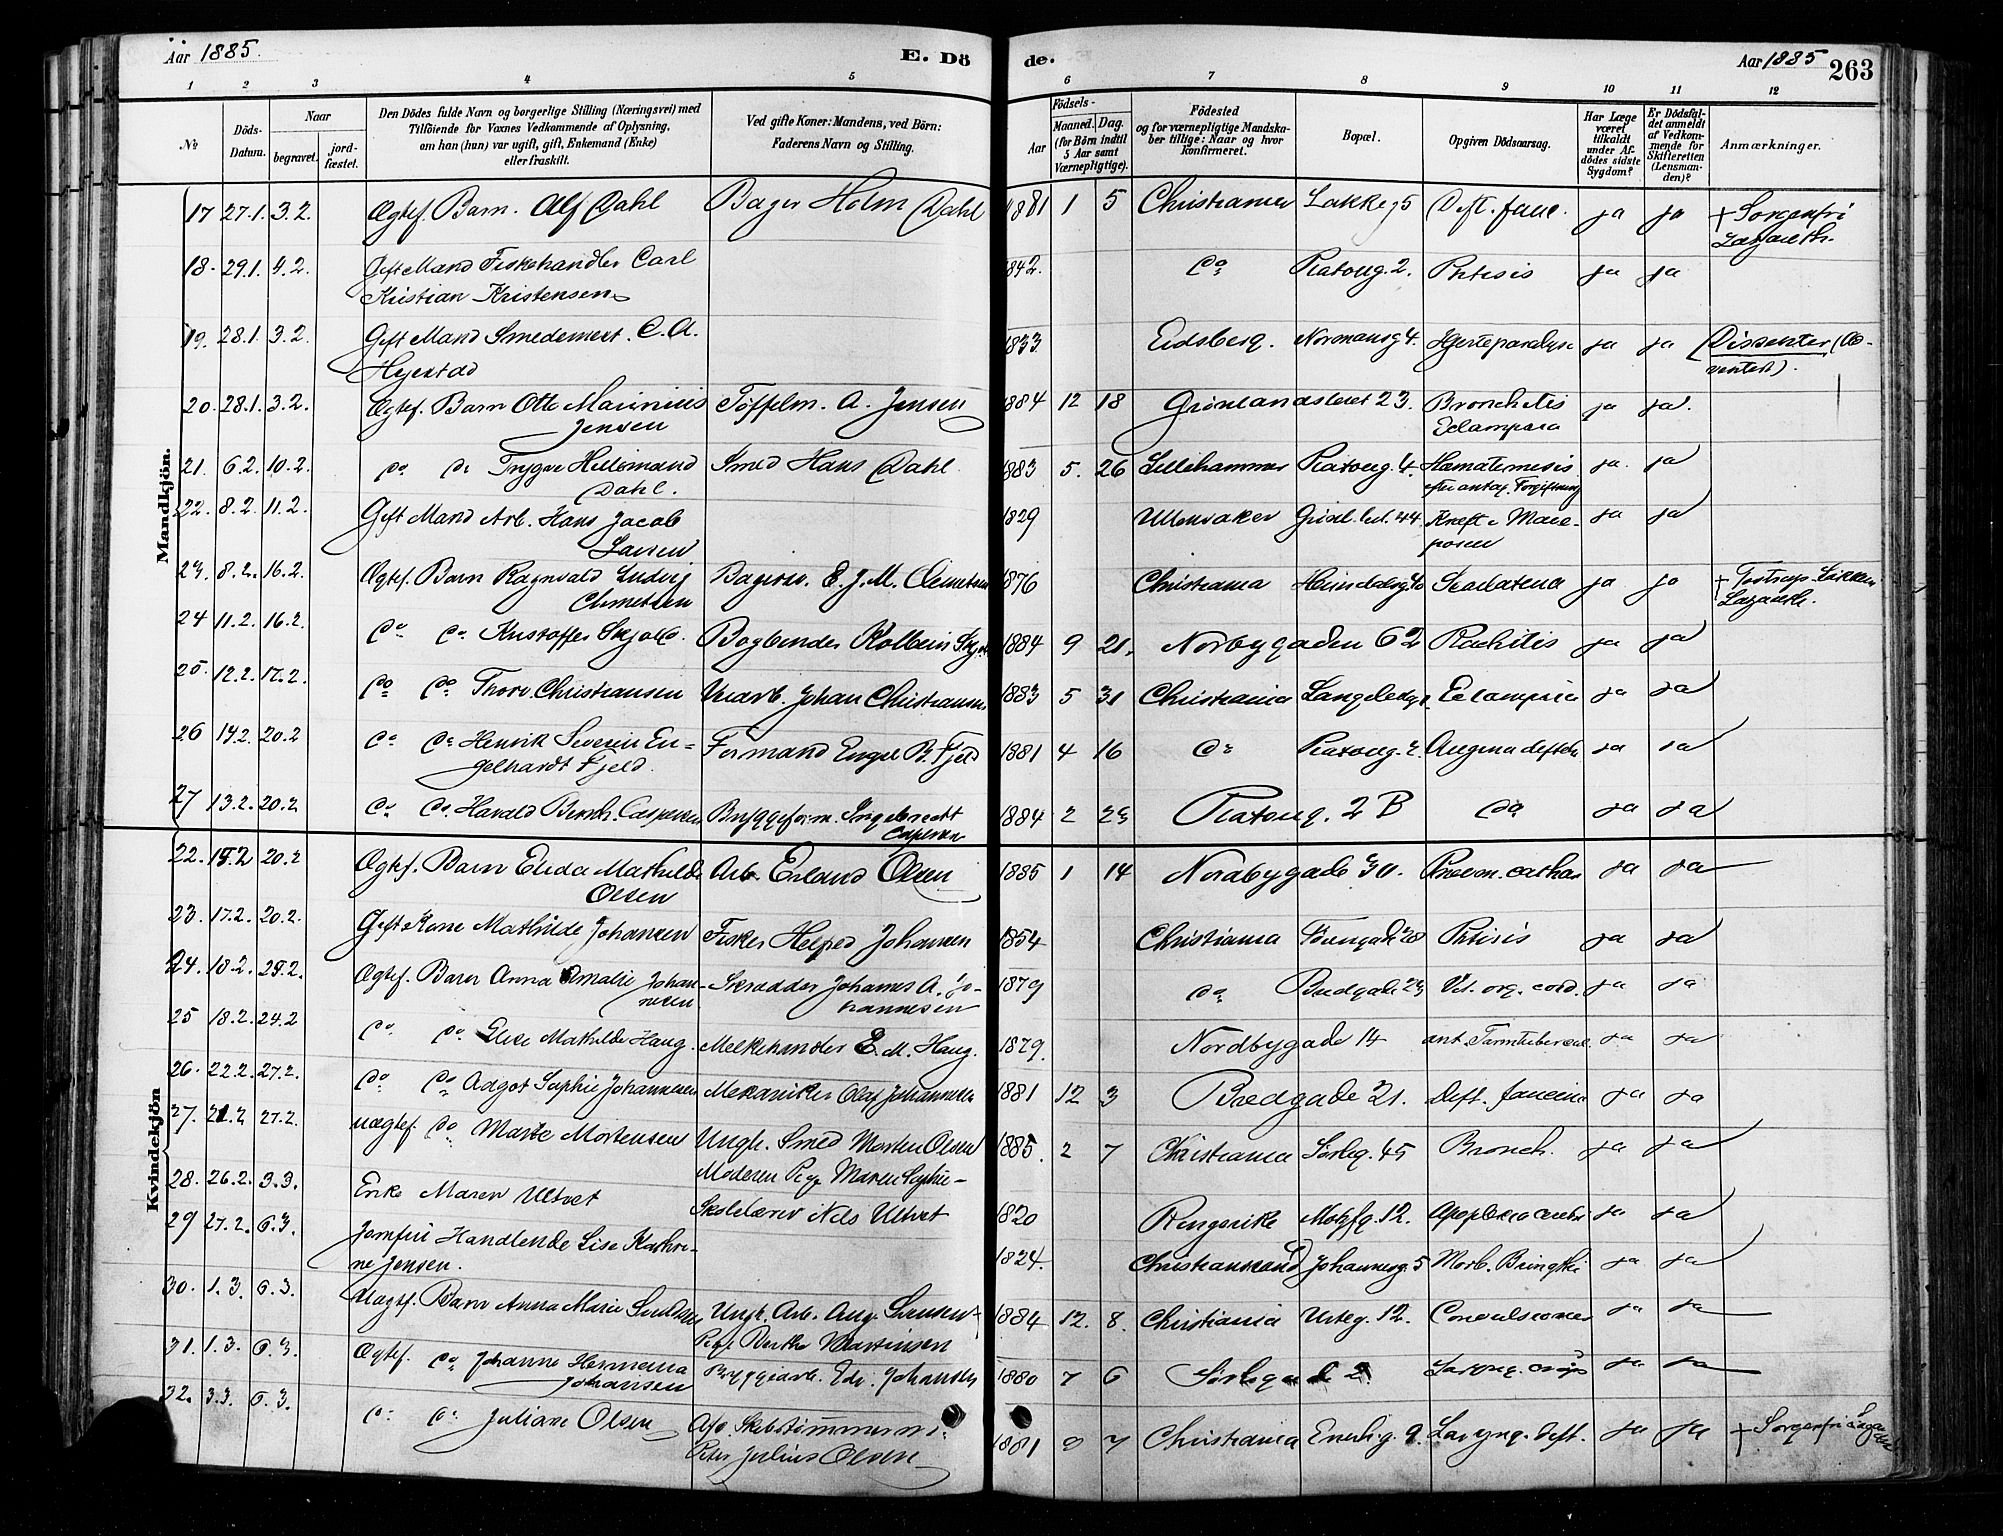 Aar 1885. E. Dö de. Aar 1885 263
1 2 3 4 5 6 7 8 9 10 11 12
No
Döds-Datum.
Naar
begravet.
jord-fæstet.
Den Dödes fulde Navn og borgerlige Stilling (Næringsvei) med
Tilföiende for Voxnes Vedkommende af Oplysning,
om han (hun) var ugift, gift, Enkemand (Enke)
eller fraskilt.
Ved gifte Koner: Mandens, ved Börn:
Faderens Navn og Stilling.
Födsels-
Aar
Maaned. Dag.
(for Börn indtil
5 Aar samt
Værnepligtige).
Födested
og for værnepligtige Mandska-
ber tillige: Naar og hvor
konfirmeret.
Bopæl.
Opgiven Dödsaarsag.
Har Læge
været
tilkaldt
under Af-
dödes sidste
Sygdom?
Er Dödsfal-
det anmeldt
af Vedkom-
mende for
Skifteretten
(Lensman-
den)?
Anmærkninger.
Mandkjön.
17 27.1. 3.2. Ægtef. Barn. Alf Dahl Bager Holm Dahl 1881 1 5 Christiania Lakkeg 5 Dift. fauc. ja ja + Sorgenfri
Lazareth.
18. 29.1. 4.2. Gift Mand Fiskehandler Carl 1842. Do Platoug. 2. Phtisis ja ja
Kristian Kristensen
19. 28.1. 3.2. Gift Mand Smedemest. C. A. 1833 Eidsberg. Normansg 4. Hjerteparalyse ja ja Dissenter (Ad-
ventist).
20. 28.1. 3.2. Ægtef. Barn Otto Marinius Töffelm. A. Jensen 1884 12 18 Grönlandsleret 23. Bronchitis ja ja.
Jensen Eclampsia
21. 6.2. 10.2. do do Trygve Hildemand Smed Hans Dahl 1883 5. 26 Lillehammer Platoug. 4. Hæmatemesis ja. ja
Dahl. efter antag. Forgiftning
22. 8.2. 11.2. Gift Mand Arb. Hans Jacob 1829 Ullensaker Grönl. ler. 44. ja ja
Larsen
23. 8.2. 16.2. Ægtef. Barn Ragnvald Ludvig Bagersv. E. J. M. Clemetsen 1876 Christiania Scarlatina ja ja
Clemetsen Lazareth.
24 11.2. 16.2. Do Do Kristoffer Bogbinder Kolbein 1884 9 21. Norbygaden 62 Rachitis ja ja
25. 12.2. 17.2. Do Do Thorv Christiansen Johan Christiansen 1883 5 31 Christiania Eclampsia ja ja
26 14.2. 20.2 Do Do Henrik Severin En- Formand Engel B. Fjeld 1881 4 16 Do Platoug. 2 Angina difth ja ja
gelhardt Fjeld.
27 13.2. 20.2 Do Do Harald Bernh. Caspersen Bryggeform. Ingebrecht 1884 2 23 Platoug. 2 B do ja ja
Caspersen
Kvindekjön
22. 15.2 20.2 Ægtef. Barn Elida Mathilde Arb. Erland Olsen 1885 1 14 Nordbygade 30. Pneum. cathar ja ja
Olsen
23. 17.2. 20.2. Gift Kone Mathilde Johansen Fisker Johansen 1854 Christiania Phtisis ja ja
24. 18.2. 25.2. Ægtef. Barn Anna Amalie Johan- Skrædder Johannes A. Jo- 1879 do Bredgade 23 Vit. org. cord. ja ja
nesen hannesen
25 18.2. 24.2 Do do Elise Mathilde Haug. Melkehandler E. M. Haug. 1879. Nordbygade 14 ant. Tarmtubercul. ja ja
26. 22.2. 27.2. Do Do Adgot Sophie Johannesen Mekaniker Olaf Johannesen 1881 12 3 Bredgade 21. Dift. faucium ja ja
27. 21.2 27.2. uægtef. Do Marte Mortensen Ungk. Smed Morten Olsen 1885. 2 7 Christiania Sörlig. 45 Bronch. ja ja
Moderen Pige Maren Sophie
28. 26.2. 3.3. Enke Maren Ultvet Skolelærer Nils Ultvet 1820 Ringerike Motzfg. 12. Apoplexia cerebri ja ja
29 27.2. 6.3. Jomfru Handlende Lise Kathri- 1824. Christianssand Johannesg. 5 Morb. Brightii ja ja
ne Jensen.
30. 1.3. 6.3. Uægtef. Barn Anna Marie Ungk. Arb. Aug. 1884 12. 8. Christiania Urteg. 12. Convulsiones ja ja
Pige Berthe Martinsen
31. 1.3. 6.3. Ægtef. Do Johanne Hermana Bryggiarb. Edv. Johansen 1880 7 6 Sörligade 2 Laryng. crup ja ja
Johansen
32. 3.3. 6.3. Do Do Juliane Olsen Afd. Skibstömmerm. 1881 9 7 Christiania Enerh.g. 9. Laryng. dift. ja ja + Sorgenfri Lazareth
Peter Julius Olsen